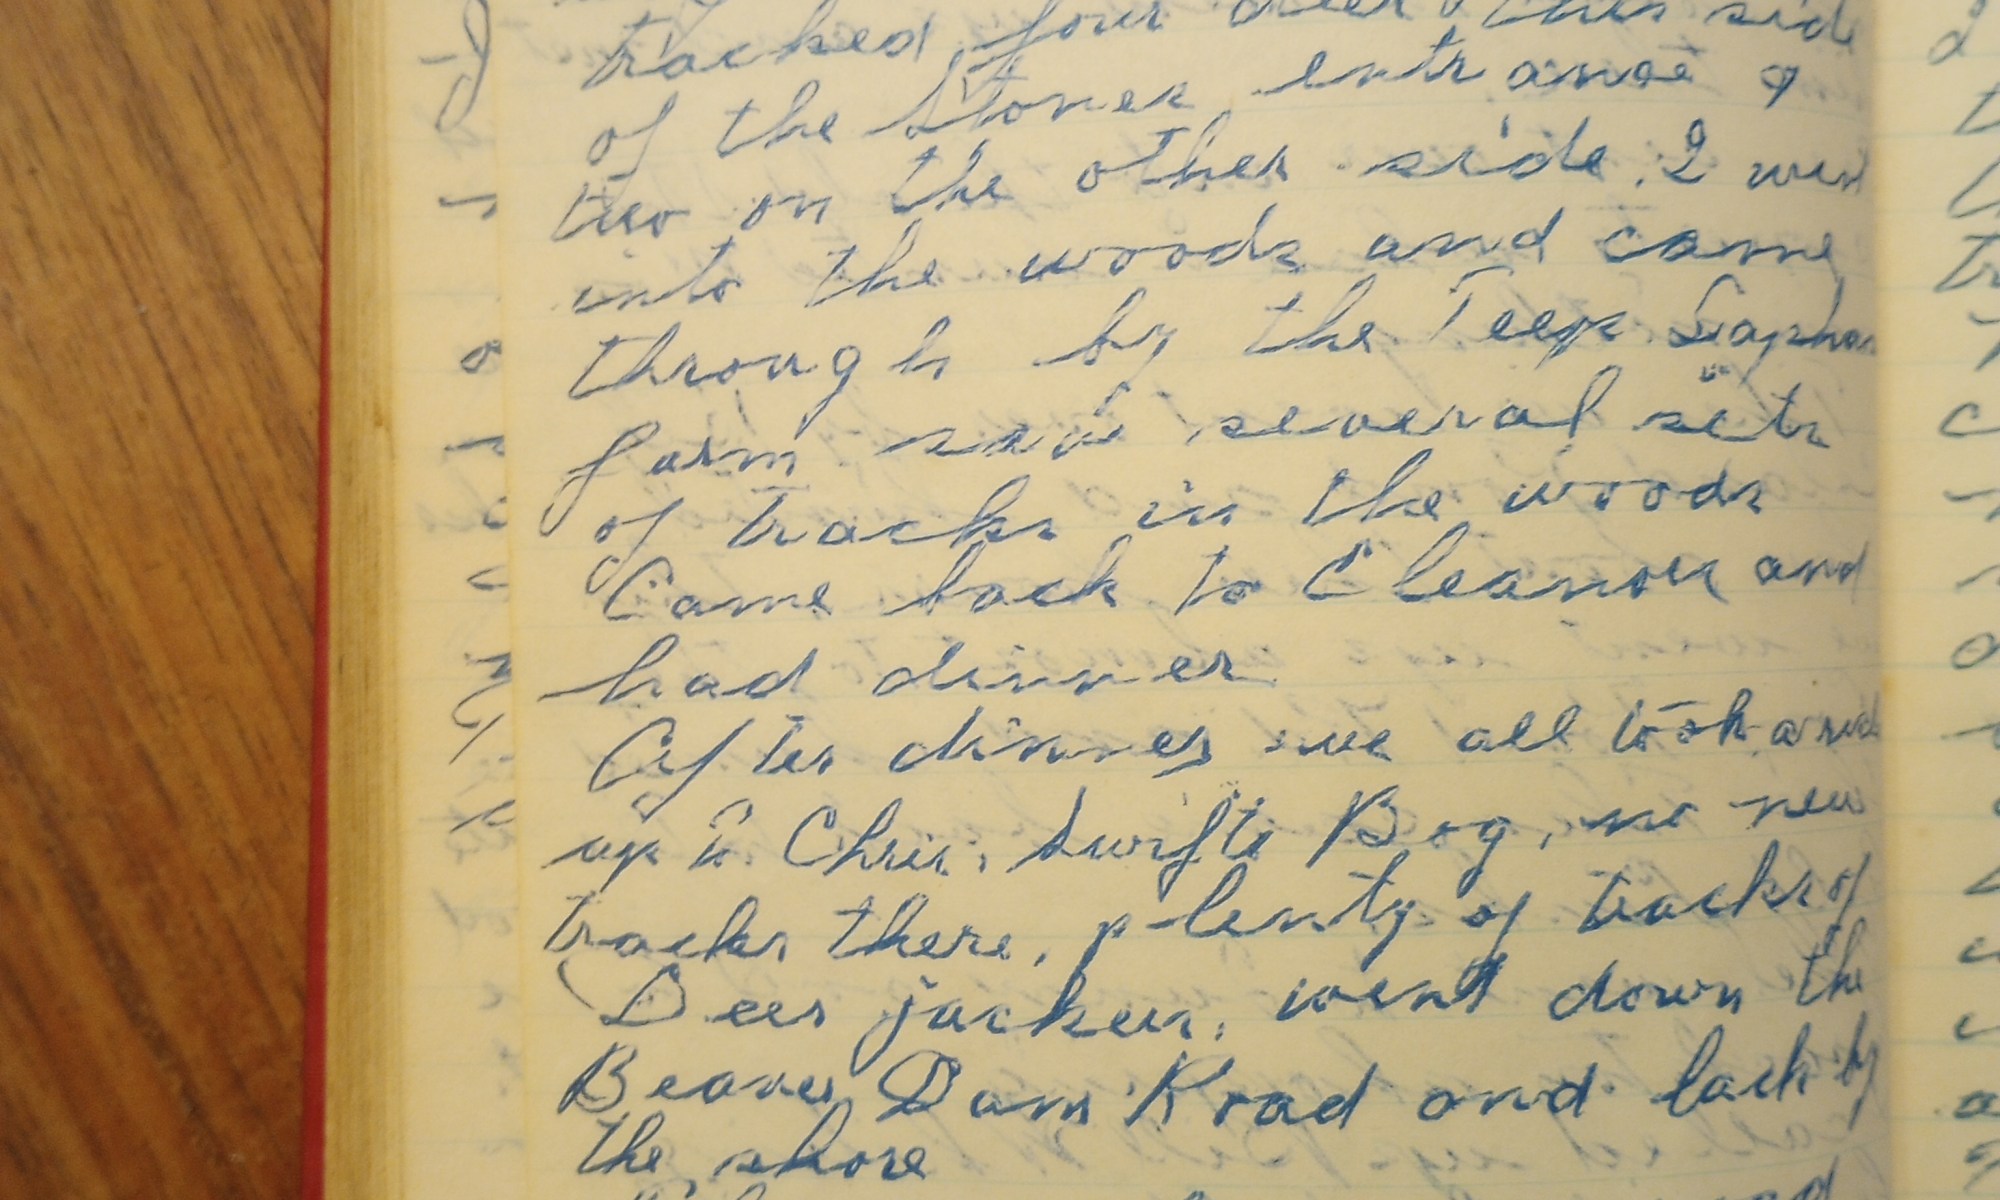 tracked four deer this side
of the Stones entrance &
two on the other side. I went
into the woods and came
through by the Teep
farm saw several sets
of tracks in the woods
Came back to Eleanors and
had dinner
After dinner we all took a ride
up to Chris. Swifts Bog, no new
tracks there, plenty of tracks of
Deer jackers, went down the
Beaver Dam Road and back by
the shore